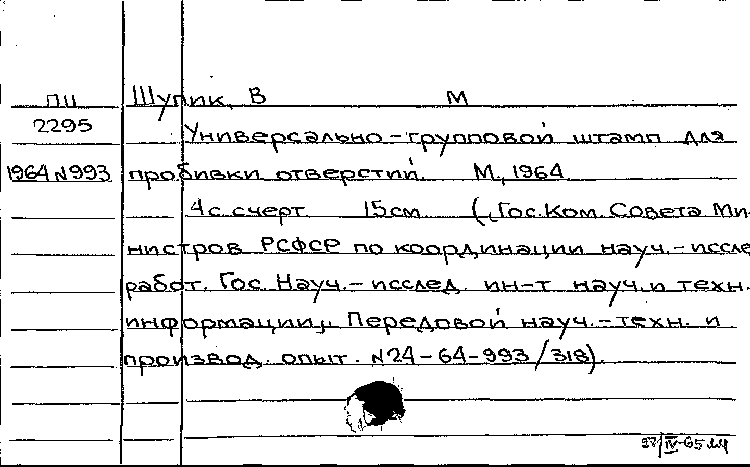 ПЦ Шупик, В М
2295 Универсально-групповой штамп для
1964 N993 пробивки отверстий. М, 1964
4с. счерт 15см („Гос. Ком. Совета Ми-
нистров РСФСР по координации науч.-иссле
работ. Гос. Науч.-исслед. ин-т науч. и техн.
информации„. Передовой науч.-техн. и
производ. опыт. N24-64-993/318).